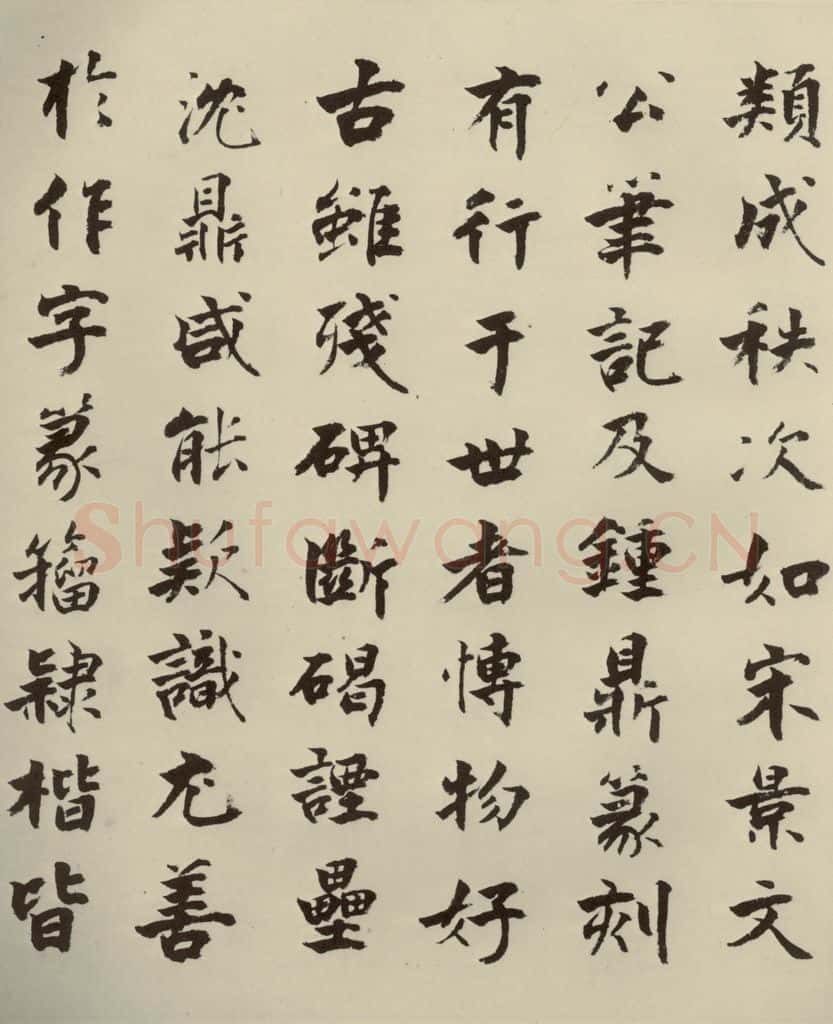 類成秩次如宋景文
公筆記及鍾鼎篆刻
有行于世者博物好
古雖殘碑斷碣諲壘
沈鼎咸能欵識尤善
於作字篆籀隸楷皆
Shufawang.CN